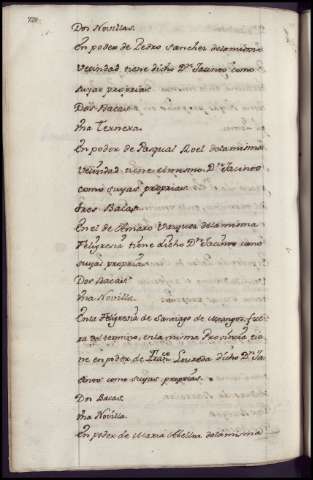 Dos Novillas.
En poder de Pedro Sanchez dela misma
vecindad tiene dicho Dn. Jacinto como
suyas propias.
Dos Bacas
Una Ternera.
En poder de Pasqual Roel dela misma
vecindad tiene el mismo Dn. Jacinto
como suyas propias.
tres Bacas.
En el de Amaro Vazquez dela misma
Feligresia tiene dicho Dn. Jacinto como
suyas propias
Dos Bacas
Una Novilla.
Enla Feligresia de Santiago de fue
ra del termino, enla misma Provincia tie
ne en poder de Franco. Loureda dicho Dn. Ja
cinto como suyas propias.
Dos Bacas.
Una Novilla.
En poder de Maria Abella dela misma